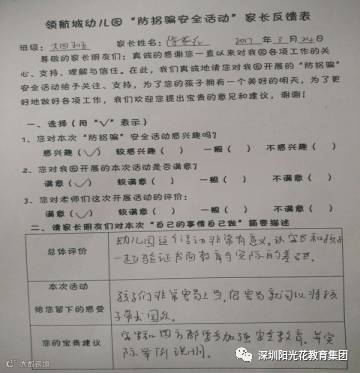 领航城幼儿园“防拐骗安全活动”家长反馈表
班级： 家长姓名： 2017年3月24日
尊敬的家长朋友们：真诚的感谢您一直以来对我园各项工作的关
心、支持、理解与信任。在此，我们真诚地请您对我园开展的“防拐骗”
安全活动给予关注、支持，为了您的孩子拥有一个美好的明天，为了更
好地做好各项工作，我们欢迎您提出宝贵的意见和建议，谢谢！
一、选择（用“√”表示）
1、您对本次“防拐骗”安全活动感兴趣吗？
感兴趣（√） 较感兴趣（ ） 一般（ ） 不感兴趣（ ）
2、您对我园开展的本次活动是否满意？
满意（√） 较满意（ ） 一般（ ） 不满意（ ）
3、您对老师们这次开展活动的评价：
满意（√） 较满意（ ） 一般（ ） 不满意（ ）
二、请家长朋友们对本次“自己的事情自己做”简要描述
总体评价
幼儿园这个活动非常有意义，让家长和孩子
一起验证
教育与实际的差距。
本次活动
给您留下的感受
孩子们非常容易上当，
很容易就可以将孩
子带出园外。
您的宝贵建议
学校和四方都要多加强安全教育，并实
际举例说明。
深圳阳光花教育集团